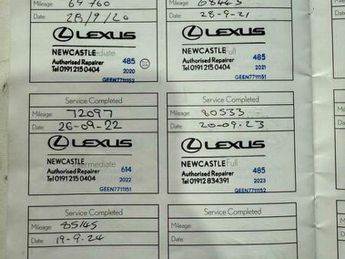 Mileage: 64760
Date: 28/9/20
LEXUS
NEWCASTLE
Authorised Repairer 485
Tel 0191 215 0404
2020
GEEN7711152
Mileage: 68443
Date: 28-9-21
LEXUS
NEWCASTLE Full
Authorised Repairer 485
Tel 0191 215 0404
2021
GEEN7711151
Service Completed
Mileage: 72097
Date: 26-09-22
LEXUS
NEWCASTLE
Authorised Repairer 614
Tel 0191 215 0404
2022
GEEN7711151
Service Completed
Mileage: 80533
Date: 20-09-23
LEXUS
NEWCASTLE Full
Authorised Repairer 485
Tel 01912 834391
2023
GEEN7711152
Service Completed
Mileage: 85145
Date: 19-9-24
Service Completed
Mileage:
Date: